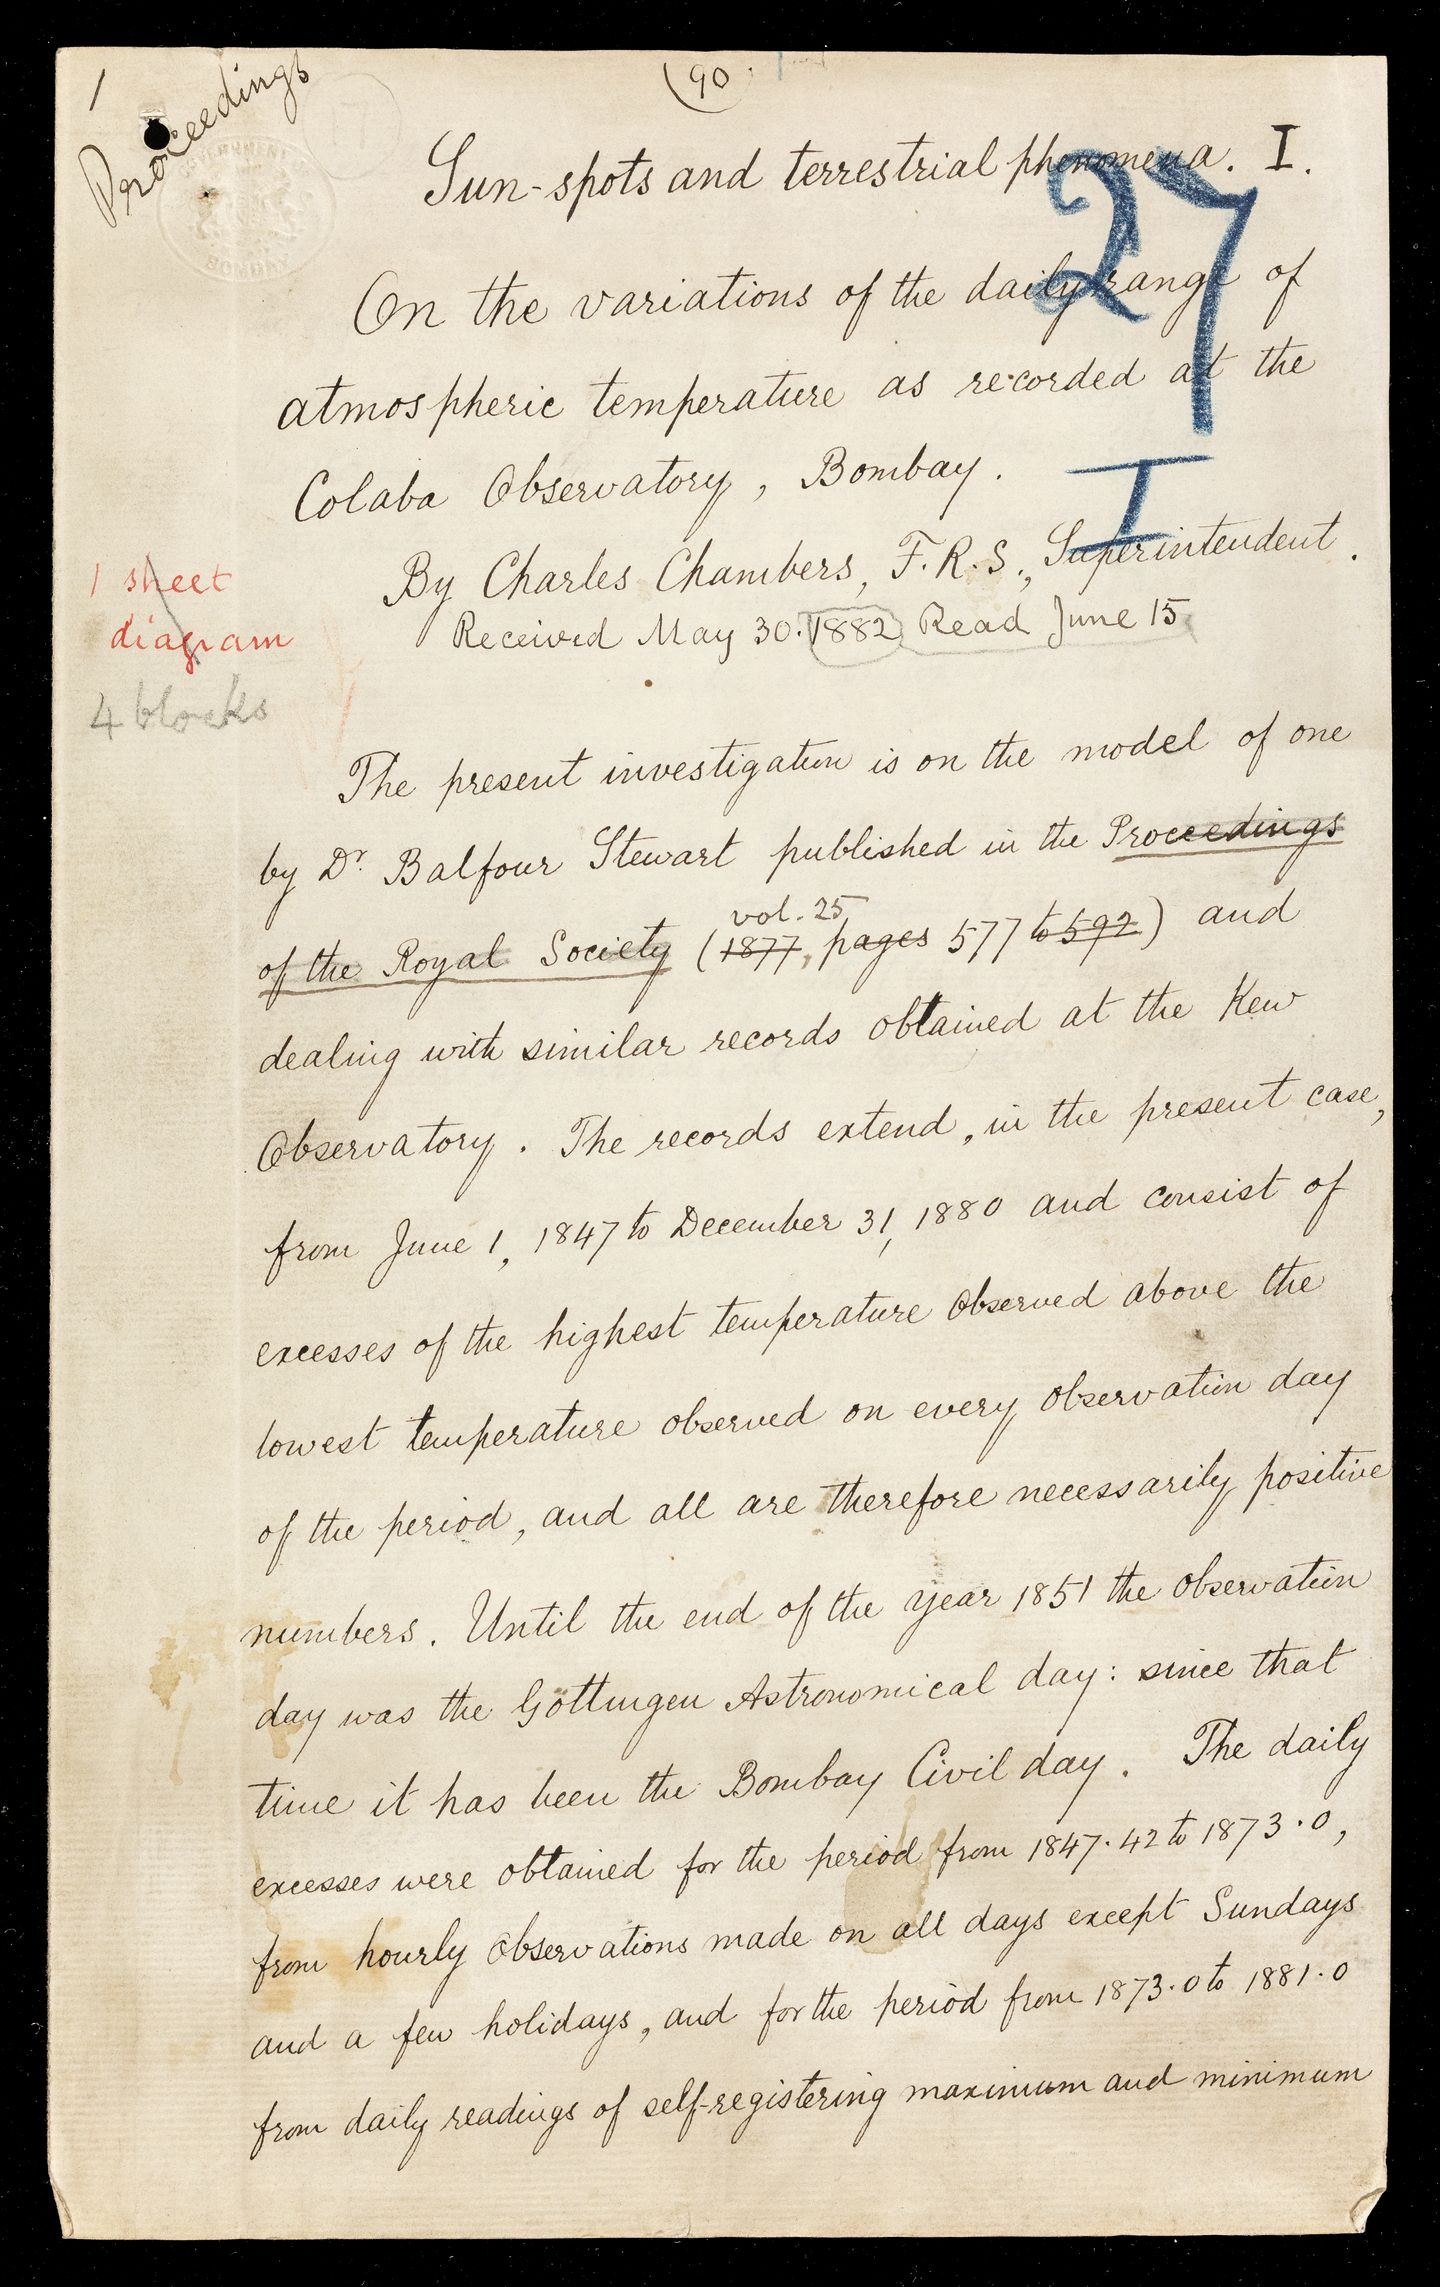 1
Proceedings
(90.
Sun-spots and terrestrial phenomena. I.
27
On the variations of the daily range of
atmospheric temperature as recorded at the
Colaba Observatory, Bombay.
I
By Charles Chambers, F.R.S., Superintendent.
1 sheet
diagram
4 blocks
Received May 30. 1882 Read June 15
The present investigation is on the model of one
by Dr. Balfour Stewart published in the Proceedings
vol. 25
of the Royal Society (1877, pages 577 to 592) and
dealing with similar records obtained at the Kew
Observatory. The records extend, in the present case,
from June 1, 1847 to December 31, 1880 and consist of
excesses of the highest temperature observed above the
lowest temperature observed on every observation day
of the period, and all are therefore necessarily positive
numbers. Until the end of the year 1851 the observation
day was the Göttingen Astronomical day: since that
time it has been the Bombay Civil day. The daily
excesses were obtained for the period from 1847.42 to 1873.0,
from hourly observations made on all days except Sundays
and a few holidays, and for the period from 1873.0 to 1881.0
from daily readings of self-registering maximum and minimum